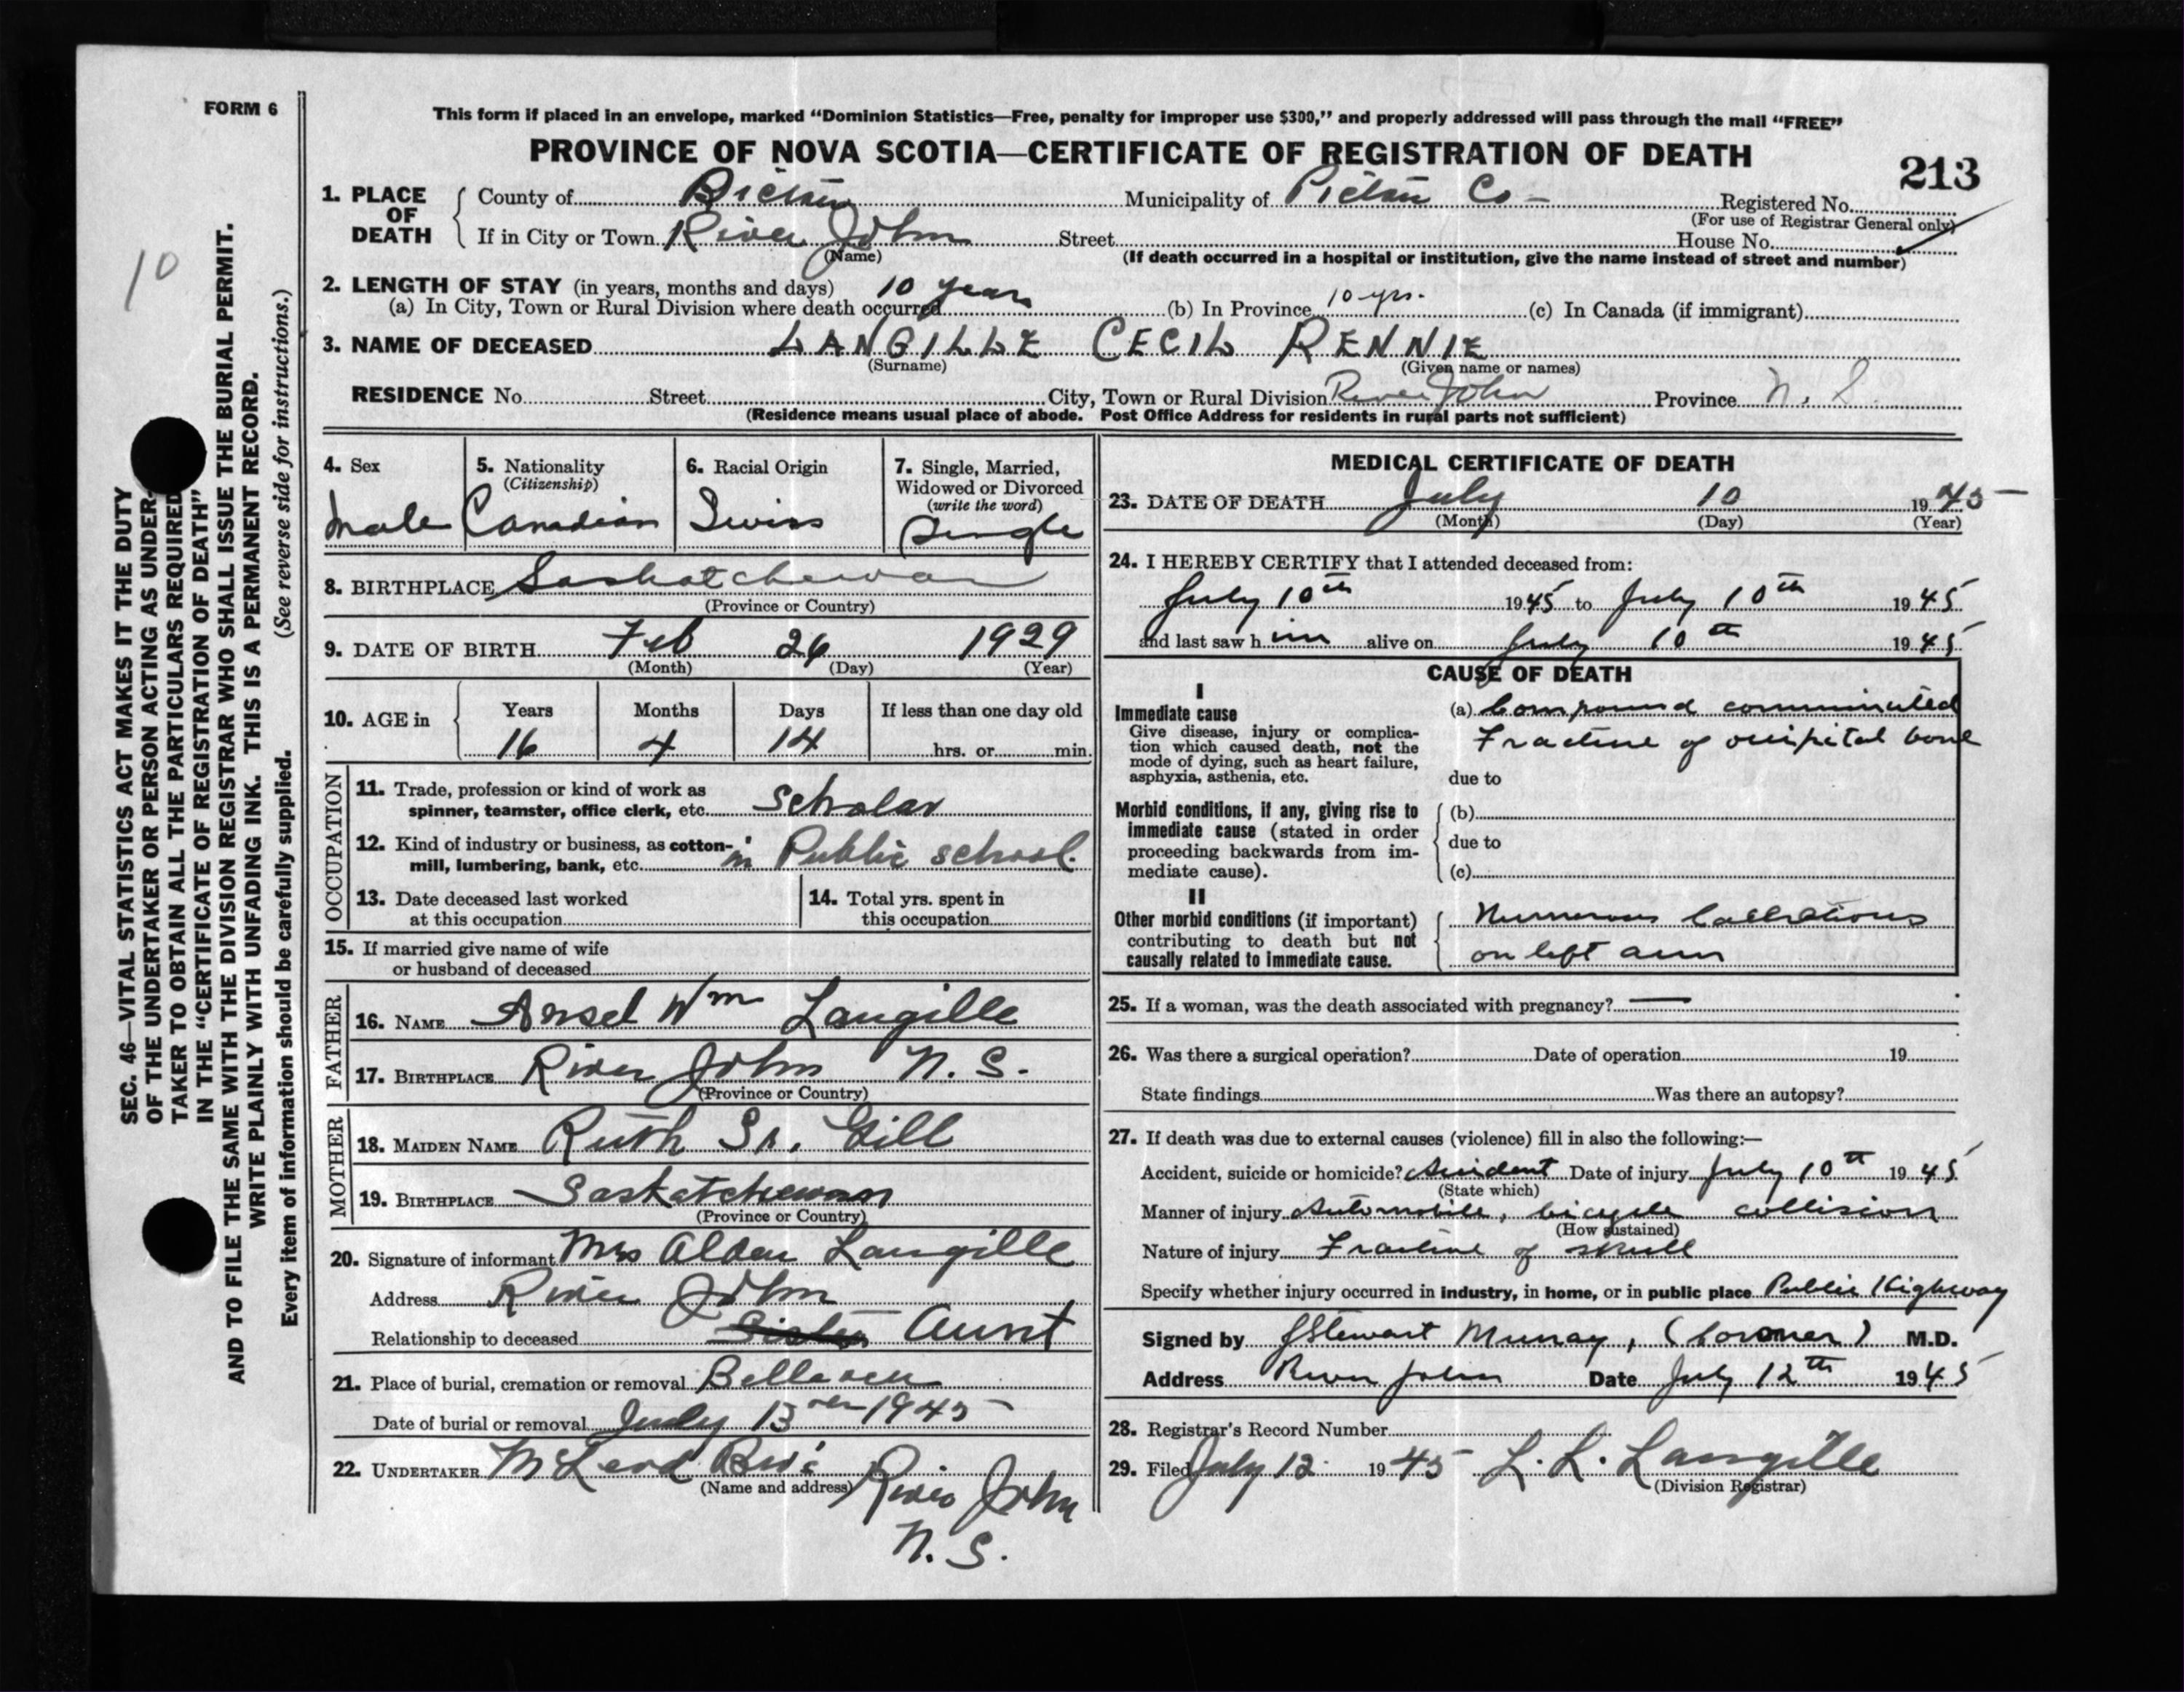 FORM 6
This form if placed in an envelope, marked "Dominion Statistics—Free, penalty for improper use $300," and properly addressed will pass through the mail "FREE"
PROVINCE OF NOVA SCOTIA—CERTIFICATE OF REGISTRATION OF DEATH
213
1. PLACE OF DEATH
County of Pictou Municipality of Pictou Co - Registered No.
(For use of Registrar General only)
If in City or Town River John Street House No.
(Name) (If death occurred in a hospital or institution, give the name instead of street and number)
2. LENGTH OF STAY (in years, months and days)
(a) In City, Town or Rural Division where death occurred 10 years (b) In Province 10 yrs. (c) In Canada (if immigrant)
3. NAME OF DECEASED LANGILLE CECIL RENNIE
(Surname) (Given name or names)
RESIDENCE No. Street City, Town or Rural Division River John Province N. S.
(Residence means usual place of abode. Post Office Address for residents in rural parts not sufficient)
4. Sex
Male
5. Nationality
(Citizenship)
Canadian
6. Racial Origin
Swiss
7. Single, Married,
Widowed or Divorced
(write the word)
Single
8. BIRTHPLACE Saskatchewan
(Province or Country)
9. DATE OF BIRTH Feb 26 1929
(Month) (Day) (Year)
10. AGE in
Years Months Days If less than one day old
16 4 14 hrs. or min.
OCCUPATION
11. Trade, profession or kind of work as
spinner, teamster, office clerk, etc. Scholar
12. Kind of industry or business, as cotton-
mill, lumbering, bank, etc. in Public school.
13. Date deceased last worked
at this occupation
14. Total yrs. spent in
this occupation
15. If married give name of wife
or husband of deceased
FATHER
16. NAME Ansel Wm Langille
17. BIRTHPLACE River John N. S.
(Province or Country)
MOTHER
18. MAIDEN NAME Ruth Gill
19. BIRTHPLACE Saskatchewan
(Province or Country)
20. Signature of informant Mrs Alden Langille
Address River John
Relationship to deceased Sister Aunt
21. Place of burial, cremation or removal
Date of burial or removal July 13th 1945
22. UNDERTAKER McLeod Bros River John
(Name and address)
N. S.
MEDICAL CERTIFICATE OF DEATH
23. DATE OF DEATH July 10 1945
(Month) (Day) (Year)
24. I HEREBY CERTIFY that I attended deceased from:
July 10th 1945 to July 10th 1945
and last saw him alive on July 10th 1945
CAUSE OF DEATH
I
Immediate cause
Give disease, injury or complica-
tion which caused death, not the
mode of dying, such as heart failure,
asphyxia, asthenia, etc.
(a) Compound comminuted
Fracture of occipital bone
due to
Morbid conditions, if any, giving rise to
immediate cause (stated in order
proceeding backwards from im-
mediate cause).
(b)
due to
(c)
II
Other morbid conditions (if important)
contributing to death but not
causally related to immediate cause.
Numerous lacerations
on left arm
25. If a woman, was the death associated with pregnancy? —
26. Was there a surgical operation? Date of operation 19
State findings Was there an autopsy?
27. If death was due to external causes (violence) fill in also the following:—
Accident, suicide or homicide? Accident Date of injury July 10th 1945
(State which)
Manner of injury Automobile, bicycle collision
(How sustained)
Nature of injury Fracture of skull
Specify whether injury occurred in industry, in home, or in public place Public Highway
Signed by J Stewart Murray, (Coroner) M.D.
Address River John Date July 12th 1945
28. Registrar's Record Number
29. Filed July 12 1945 L. L. Langille
(Division Registrar)
10
SEC. 46—VITAL STATISTICS ACT MAKES IT THE DUTY
OF THE UNDERTAKER OR PERSON ACTING AS UNDER-
TAKER TO OBTAIN ALL THE PARTICULARS REQUIRED
IN THE "CERTIFICATE OF REGISTRATION OF DEATH"
AND TO FILE THE SAME WITH THE DIVISION REGISTRAR WHO SHALL ISSUE THE BURIAL PERMIT.
WRITE PLAINLY WITH UNFADING INK. THIS IS A PERMANENT RECORD.
Every item of information should be carefully supplied. (See reverse side for instructions.)